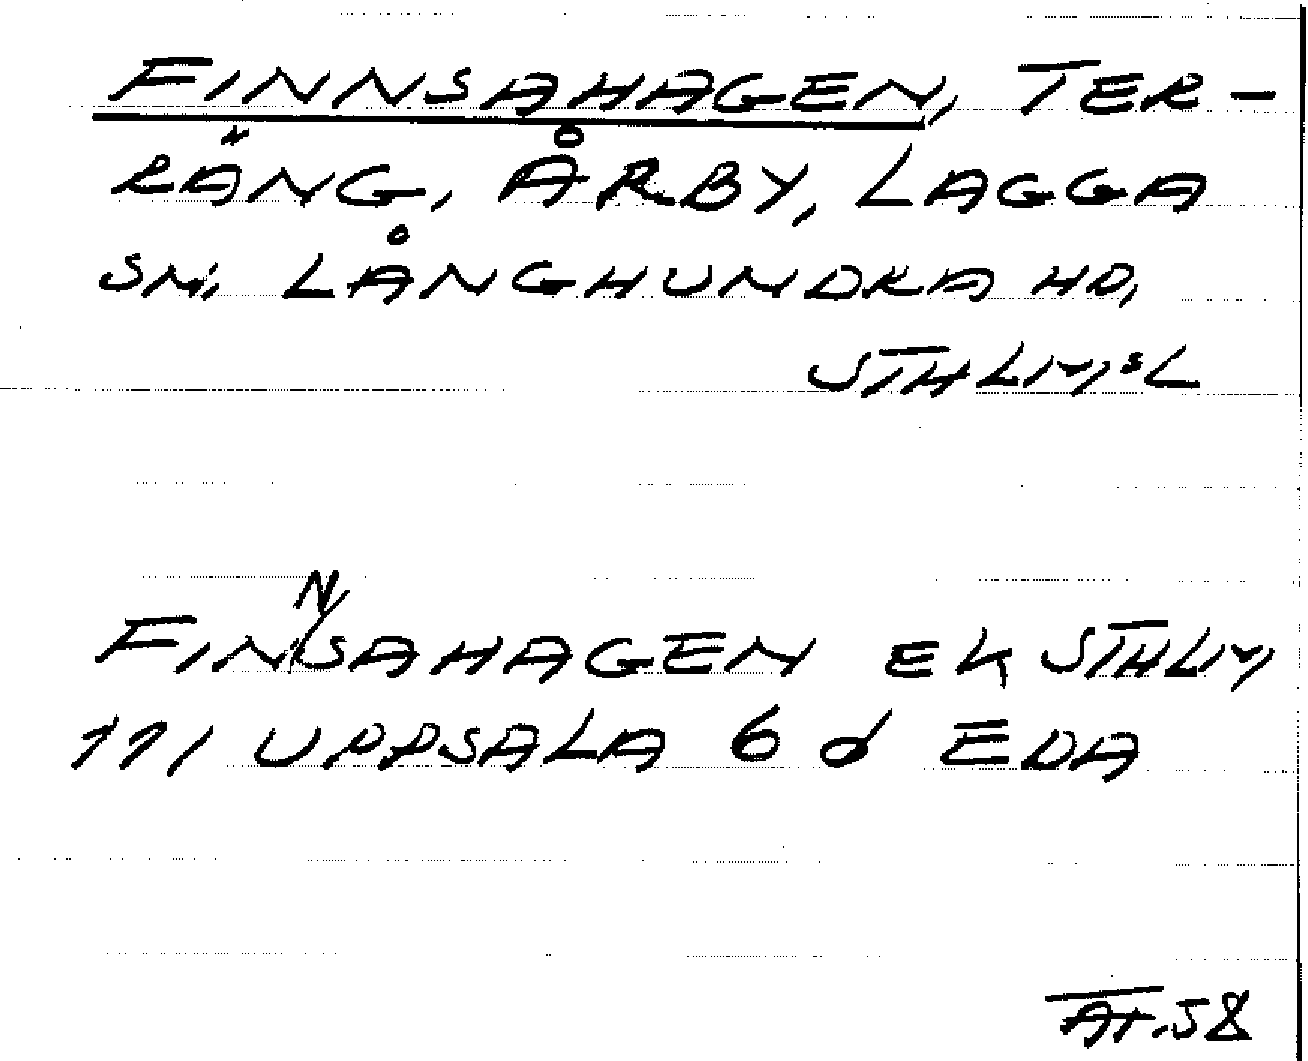 FINNSAHAGEN, TER-
RÄNG, ÅRBY, LAGGA
SN, LÅNGHUNDRA HD,
STHLMSL
FINNSAHAGEN EK STHLM
111 UPPSALA 6 d EDA
AT.58